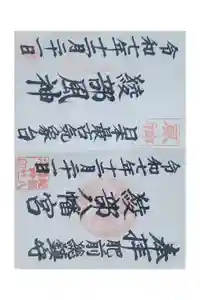 奉拝 肥前綾部
綾部八幡宮
令和七年十二月二十一日
日本最古気象台
綾部風神
令和七年十二月二十一日